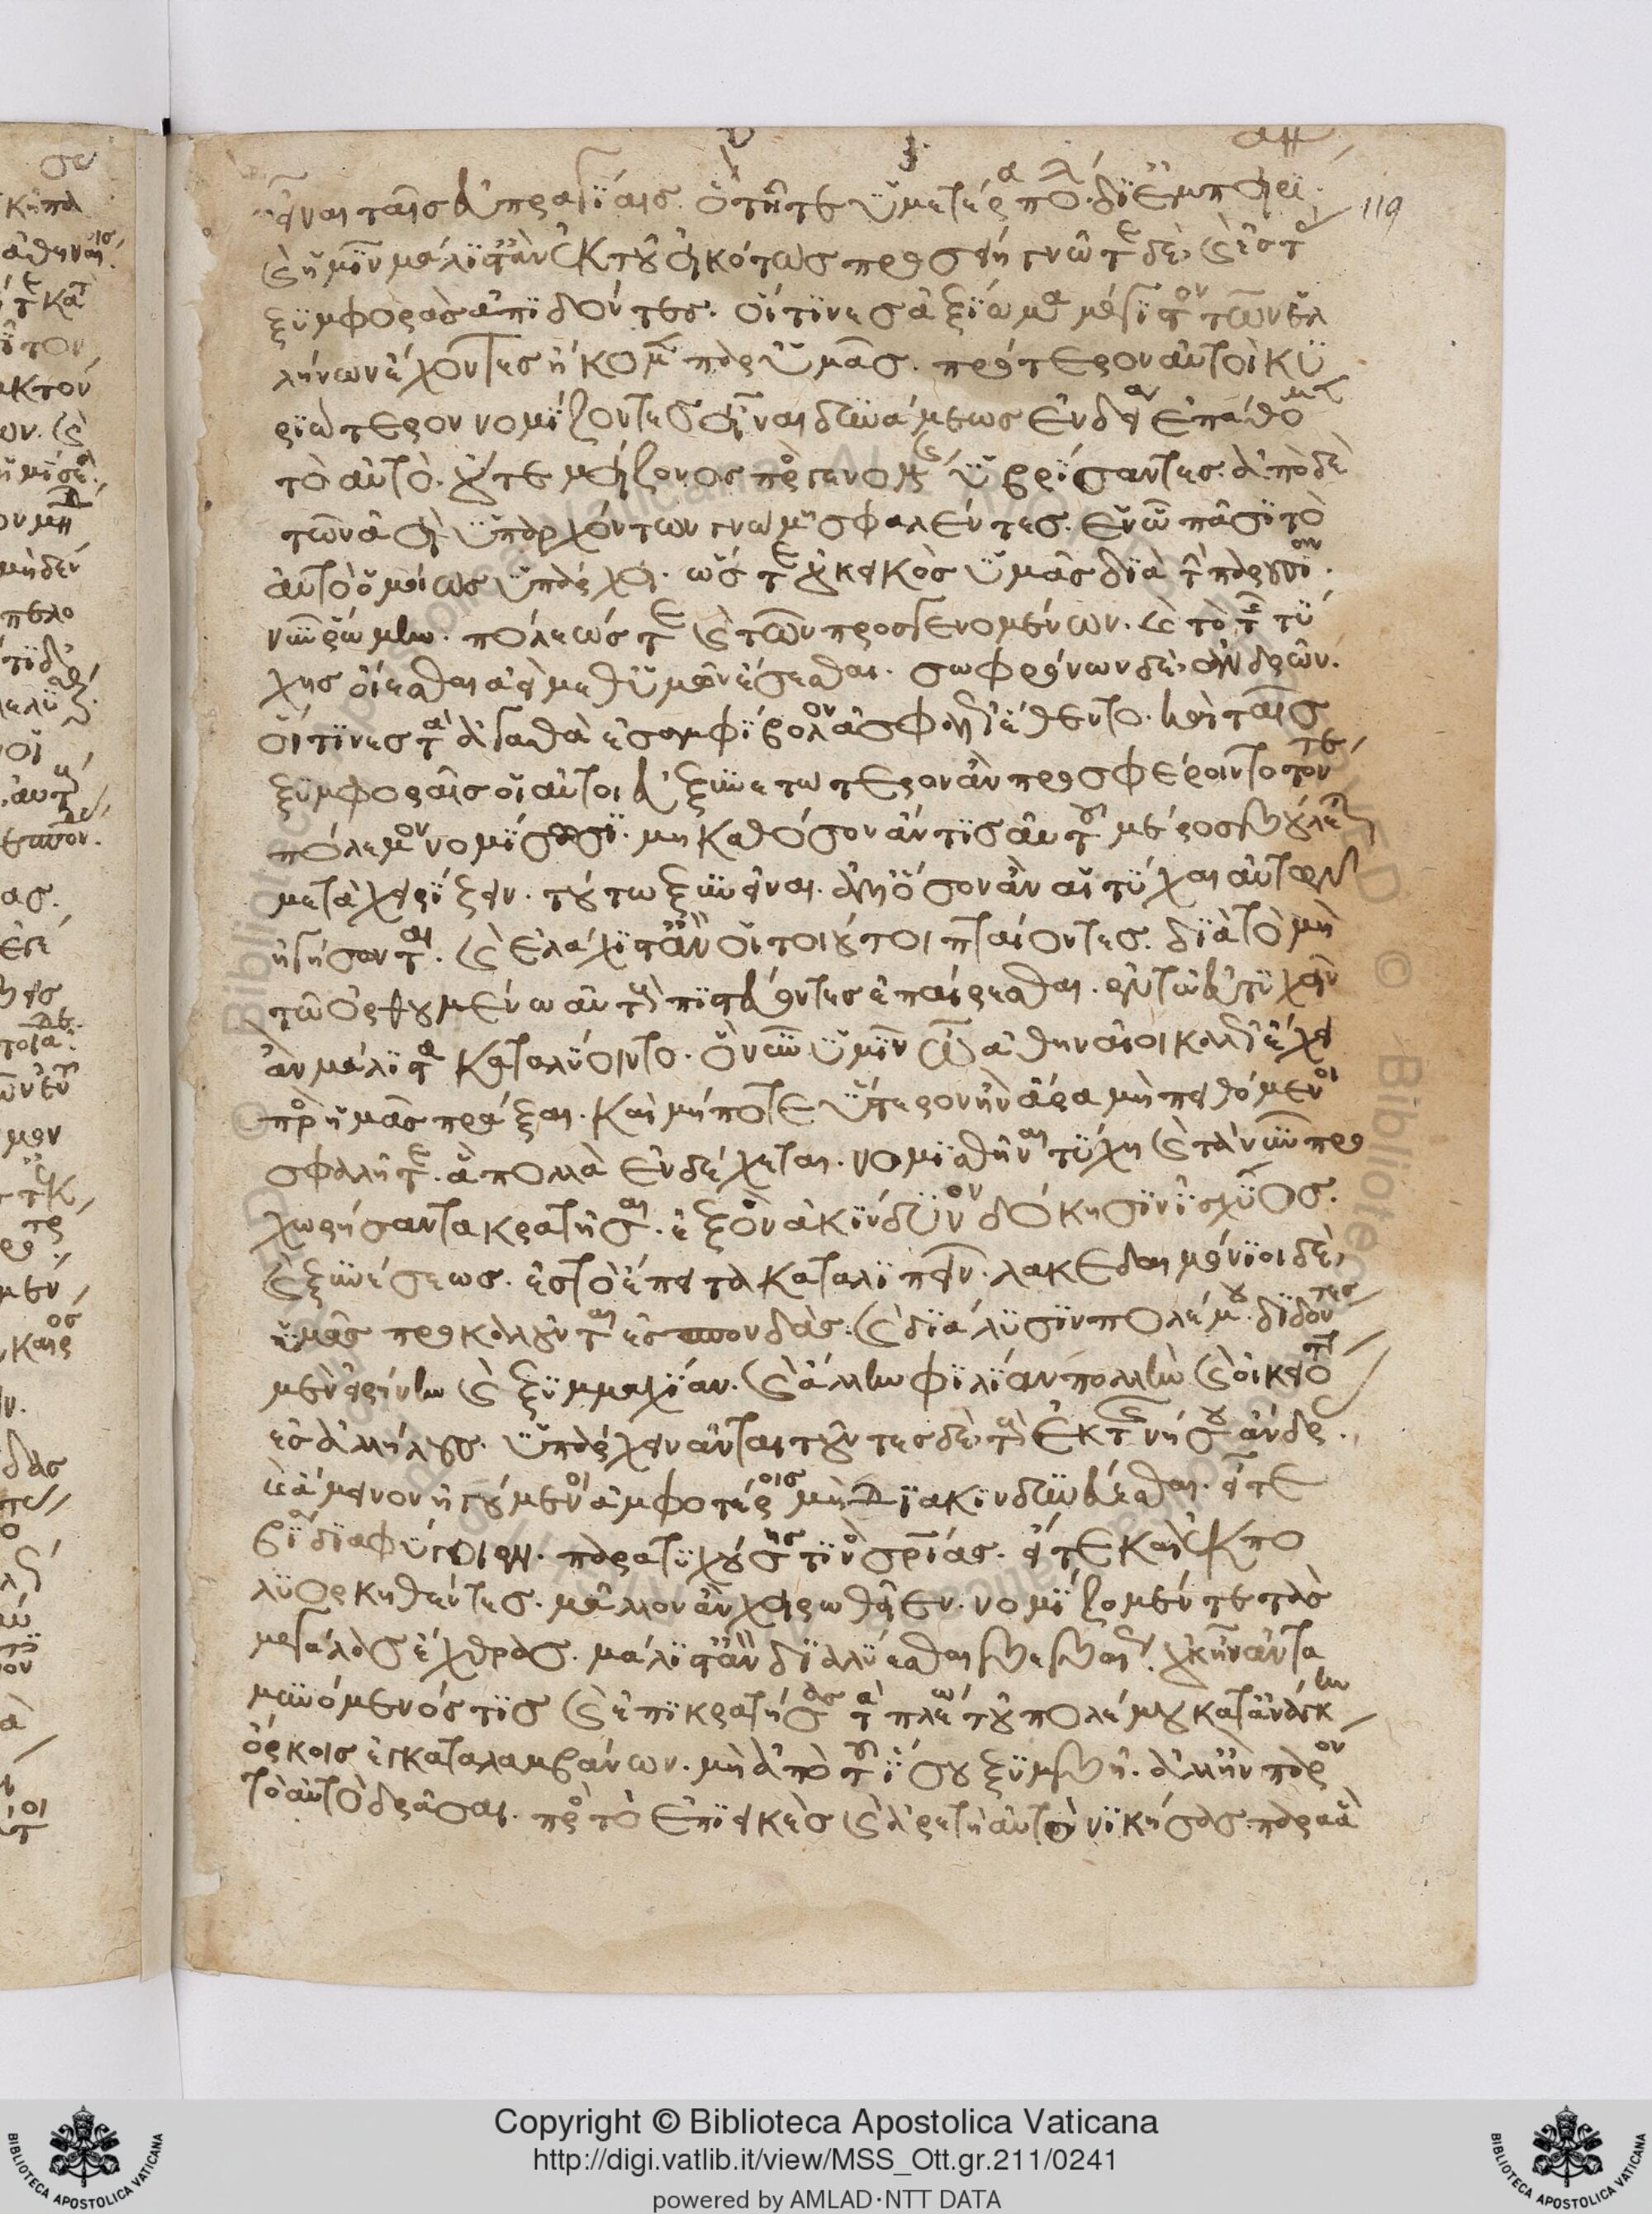 εἶναι ταῖς εὐπραγίαις. ὃ τῆ τε ὑμετέρα πόλ. δι' ἐμπειρί.
καὶ ἡμῖν μάλιστ' ἂν ἐκ τοῦ εἰκότως προσείη γνῶτε δὲ, καὶ ἐς τὰς
ξυμφορὰς ἀπιδόντες. οἵτινες ἀξίωμα μέγιστον τῶν ἑλ
λήνων ἔχοντες ἥκομεν παρ' ὑμᾶς. πρότερον αὐτοὶ κυ
ριώτερον νομίζοντες εἶναι δυνάμεως ἐνδείαν ἐπάθομεν
τὸ αὐτὸ. οὔτε μείζονος προσγενομένης ὑβρίσαντες. ἀπὸ δὲ
τῶν ἀεὶ ὑπαρχόντων γνώμη σφαλέντες. ἐν ὧ πᾶσι τὸ
αὐτὸ ὁμοίως ὑπάρχει. ὥστε οὐκ εἰκὸς ὑμᾶς διὰ τὴν παροῦσαν.
νῦν ῥώμην. πόλεώς τε καὶ τῶν προσγενομένων. καὶ τὸ τῆς τύ
χης οἴεσθαι ἀεὶ μεθ' ὑμῶν ἔσεσθαι. σωφρόνων δὲ, ἀνδρῶν.
οἵτινες τὰ ἀγαθὰ ἐς ἀμφίβολον ἀσφαλῶς ἔθεντο. καὶ ταῖς
ξυμφοραῖς οἱ αὐτοὶ εὐξυνετώτερον ἂν προσφέροιντο τόν τε
πόλεμον νομίσωσι. μὴ καθόσον ἄν τις αὐτοῦ μέρος βούληται
μεταχειρίζειν. τούτω ξυνεῖναι. ἀλλ' ὅσον ἂν αἱ τύχαι αὐτῶν
ἡγήσονται. καὶ ἐλάχιστ' ἂν οἱ τοιοῦτοι πταίοντες. διὰ τὸ μὴ
τῶ ὀρθουμένω αὐτοῦ πιστεύοντες ἐπαίρεσθαι. ἐν τῶ εὐτυχεῖν
ἂν μάλιστα καταλύοιντο. ὃ νῦν ὑμῖν ὦ ἀθηναῖοι καλῶς ἔχει
πρὸς ἡμᾶς πρᾶξαι. καὶ μήποτε ὕστερον ἢν ἄρα μὴ πειθόμενοι
σφαλῆτε. ἃ πολλὰ ἐνδέχεται. νομισθῆναι τύχη καὶ τὰ νῦν προ
χωρήσαντα κρατῆσαι. ἐξὸν ἀκίνδυνον δόκησιν ἰσχύος.
καὶ ξυνέσεως. ἐς τὸ ἔπειτα καταλιπεῖν. λακεδαιμόνιοι δὲ,
ὑμᾶς προκαλοῦνται ἐς σπονδὰς. καὶ διάλυσιν πολέμου. διδόντες
μὲν εἰρήνην καὶ ξυμμαχίαν. καὶ ἄλλην φιλίαν πολλὴν καὶ οἰκειότητα
ἐς ἀλλήλους. ὑπάρχειν ἀνταιτοῦντες δὲ, τοὺς ἐκ τῆς νήσου ἄνδρ.
καὶ ἄμεινον ἡγούμενοι ἀμφοτέροις μὴ διακινδυνεύεσθαι. εἴτε
βία διαφύγοιεν. παρατυχούσης τινὸς σωτηρίας. εἴτε καὶ ἐκπο
λιορκηθέντες. μᾶλλον ἂν χειρωθεῖεν. νομίζομέν τε τὰς
μεγάλας ἔχθρας. μάλιστ' ἂν διαλύεσθαι βεβαίως. οὐκ ἢν ἀντα
μυνόμενός τις καὶ ἐπικρατήσας τὰ πλέω τοῦ πολέμου κατ' ἀνάγκην
ὅρκοις ἐγκαταλαμβάνων. μὴ ἀπὸ τοῦ ἴσου ξυμβῆ. ἀλλ' ἢν παρὸν
τὸ αὐτὸ δρᾶσαι. πρὸς τὸ ἐπιεικὲς καὶ ἀρετῆ αὐτὸν νικήσας. παρ' ἃ
119